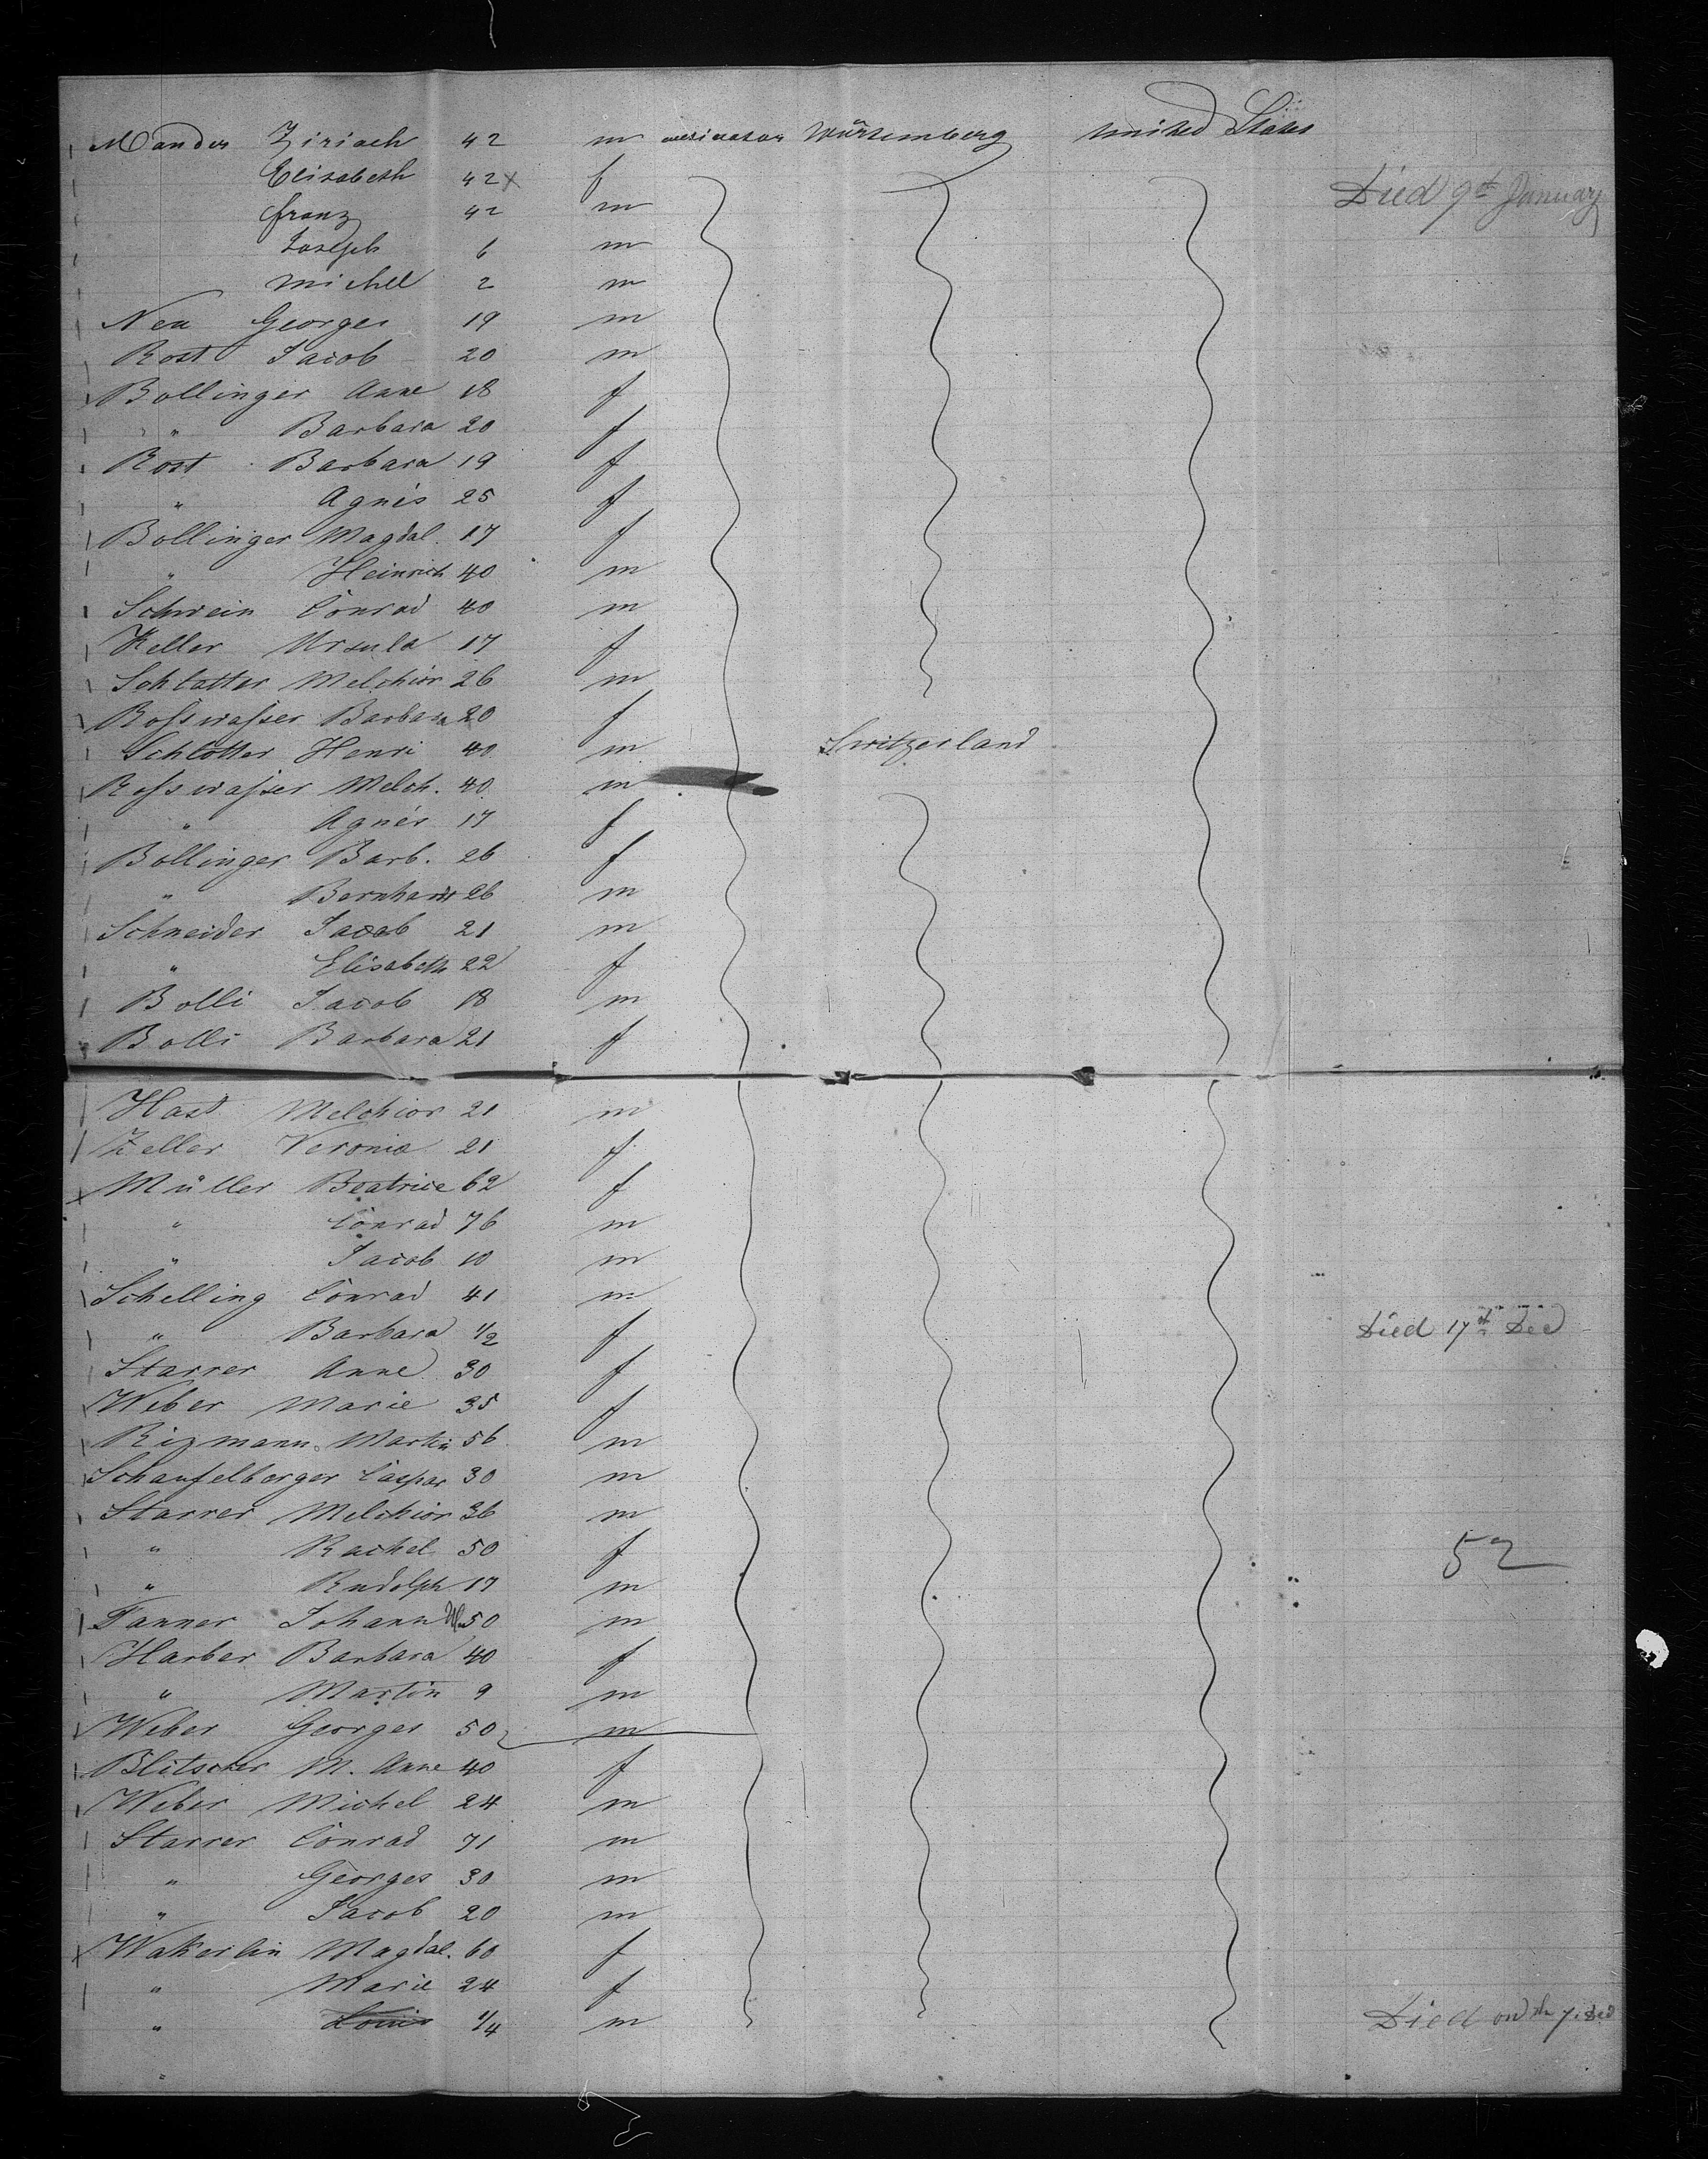 Mander Ziriach 42 m Würtemberg United States
Elisabeth 42 x f Died 9th January
franz 42 m
Joseph 6 m
Michel 2 m
Neu Georges 19 m
Rost Jacob 20 m
Bollinger Anne 18 f
" Barbara 20 f
Rost Barbara 19 f
" Agnés 25 f
Bollinger Magdal. 17 f
" Heinrich 40 m
Schwein Conrad 40 m
Keller Ursula 17 f
Schlatter Melchior 26 m
Rosswasser Barbara 20 f
Schlotter Henri 40 m Switzerland
Rosswasser Melch. 40 m
" Agnés 17 f
Bollinger Barb. 26 f
" Bernhardt 26 m
Schneider Jacob 21 m
" Elisabeth 22 f
Bolli Jacob 18 m
Bolli Barbara 21 f
Hast Melchior 21 m
Zeller Veronia 21 f
Müller Beatrice 62 f
" Conrad 76 m
" Jacob 10 m
Schelling Conrad 41 m
" Barbara 1/2 f Died 17th Dec
Starrer Anne 30 f
Weber Marie 35 f
Rizmann Martin 56 m
Schaufelberger Caspar 30 m
Starrer Melchior 36 m
" Rachel 50 f 52
" Rudolph 17 m
Tanner Johann 50 m
Harber Barbara 40 f
" Martin 9 m
Weber Georges 50 m
Blitscher M. Anne 40 f
Weber Michel 24 m
Starrer Conrad 71 m
" Georges 30 m
" Jacob 20 m
Wakerlin Magdal. 60 f
" Marie 24 f
" Louis 1/4 m Died on the 7. Dec
"